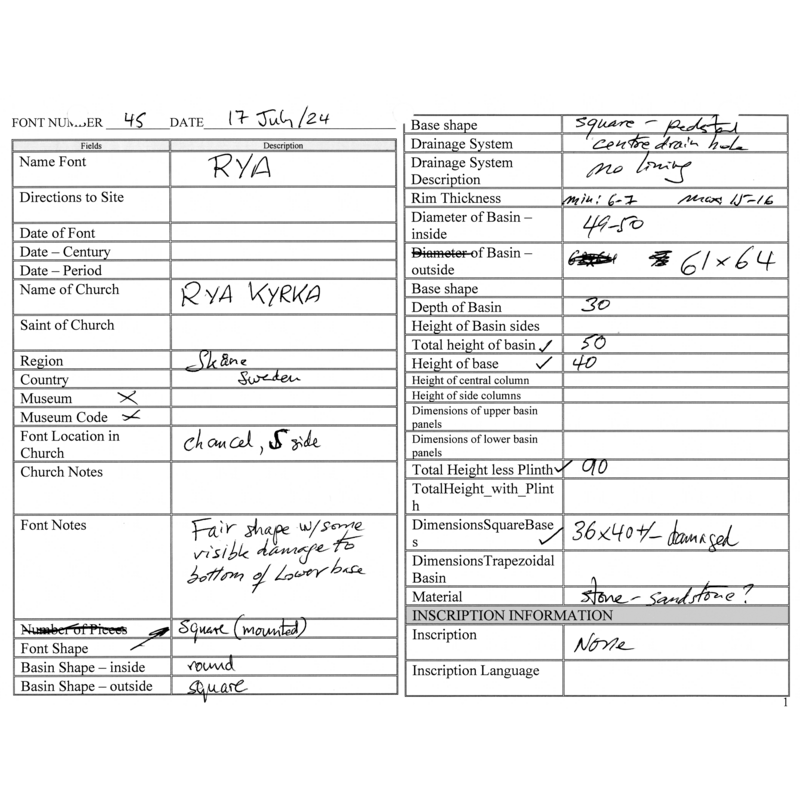 FONT NUMBER 45 DATE 17 July/24
Fields Description
Name Font RYA
Directions to Site
Date of Font
Date – Century
Date – Period
Name of Church RYA KYRKA
Saint of Church
Region Skåne
Country Sweden
Museum X
Museum Code X
Font Location in chancel, S side
Church
Church Notes
Font Notes Fair shape w/some
visible damage to
bottom of lower base
Number of Pieces
Font Shape Square (mounted)
Basin Shape – inside round
Basin Shape – outside square
Base shape square – pedestal
Drainage System centre drain hole
Drainage System no lining
Description
Rim Thickness min: 6-7 max 15-16
Diameter of Basin – 49-50
inside
Diameter of Basin – 61 x 64
outside
Base shape
Depth of Basin 30
Height of Basin sides
Total height of basin ✓ 50
Height of base ✓ 40
Height of central column
Height of side columns
Dimensions of upper basin
panels
Dimensions of lower basin
panels
Total Height less Plinth ✓ 90
TotalHeight_with_Plint
h
DimensionsSquareBase 36x40 +/- damaged
s ✓
DimensionsTrapezoidal
Basin
Material stone – sandstone?
INSCRIPTION INFORMATION
Inscription None
Inscription Language
1